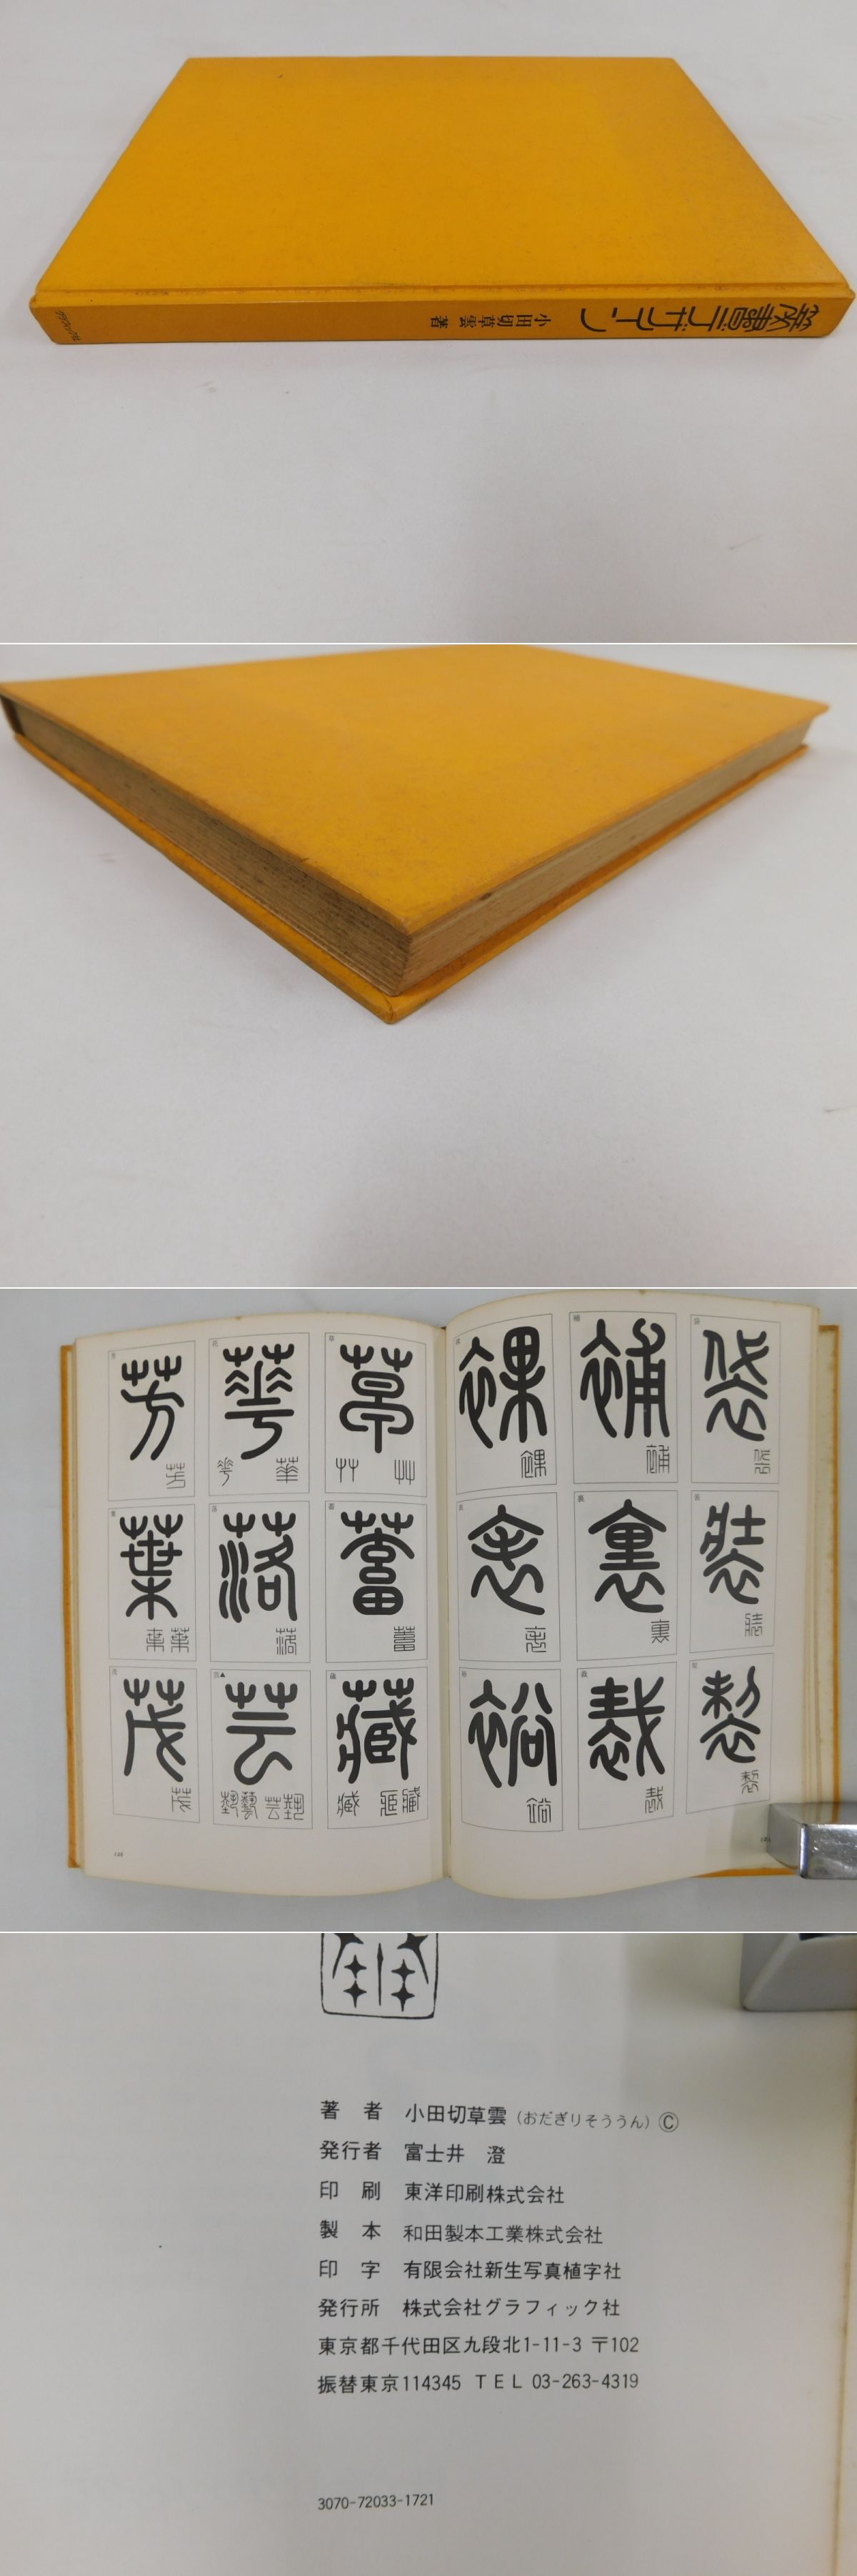 篆書デザイン 小田切草雲 著 グラフィック社
袋 補 裸
装 裏 衷
製 裁 裕
草 花 芳
蓄 落 葉
蔵 芸▲ 茂
著 者 小田切草雲（おだぎりそううん）Ⓒ
発行者 富士井 澄
印 刷 東洋印刷株式会社
製 本 和田製本工業株式会社
印 字 有限会社新生写真植字社
発行所 株式会社グラフィック社
東京都千代田区九段北1-11-3 〒102
振替東京114345 TEL 03-263-4319
3070-72033-1721